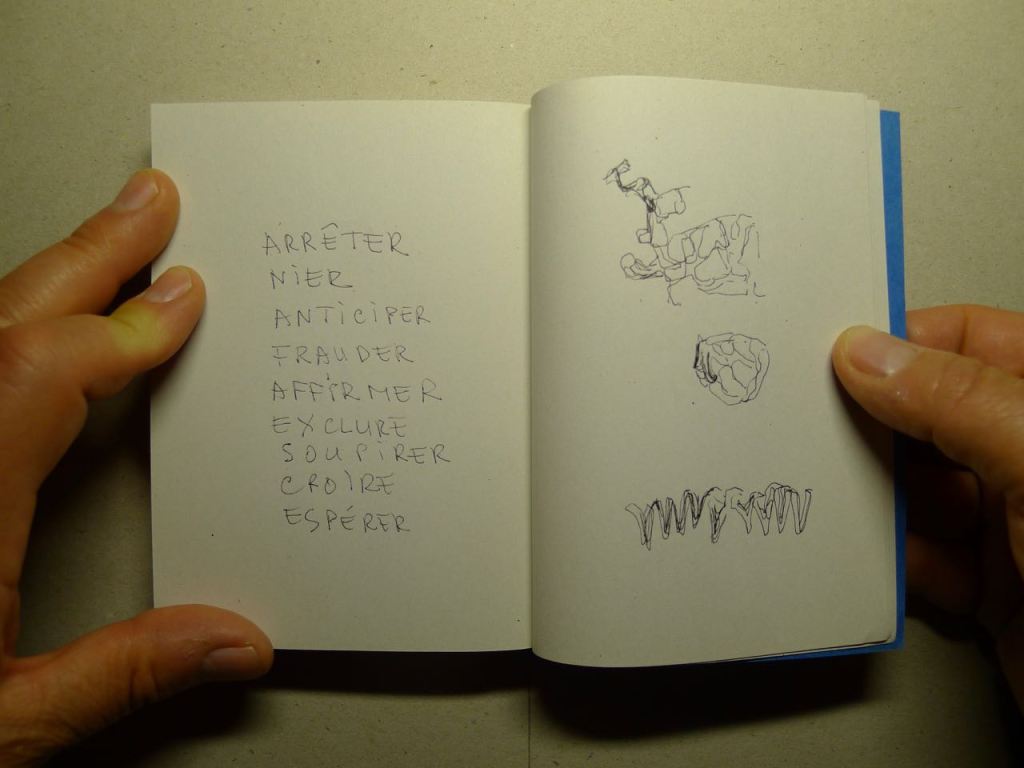 ARRÊTER
NIER
ANTICIPER
FRAUDER
AFFIRMER
EXCLURE
SOUPIRER
CROIRE
ESPÉRER